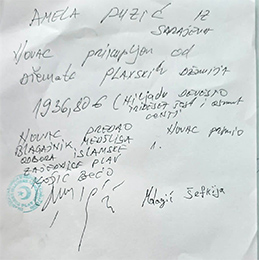 AMELA PUZIĆ IZ
SARAJEVA
NOVAC prikupljen od
džemata PLAVSKIH DŽAMIJA
1936,80 € (Hiljadu DEVETSTO
TRIDESET ŠEST i osamdeset
centi)
NOVAC PREDAO NOVAC primio
BLAGAJNIK MEDŽLISA 1.
ODBORA ISLAMSKE
ZAJEDNICE PLAV
BEĆO
Šefkija